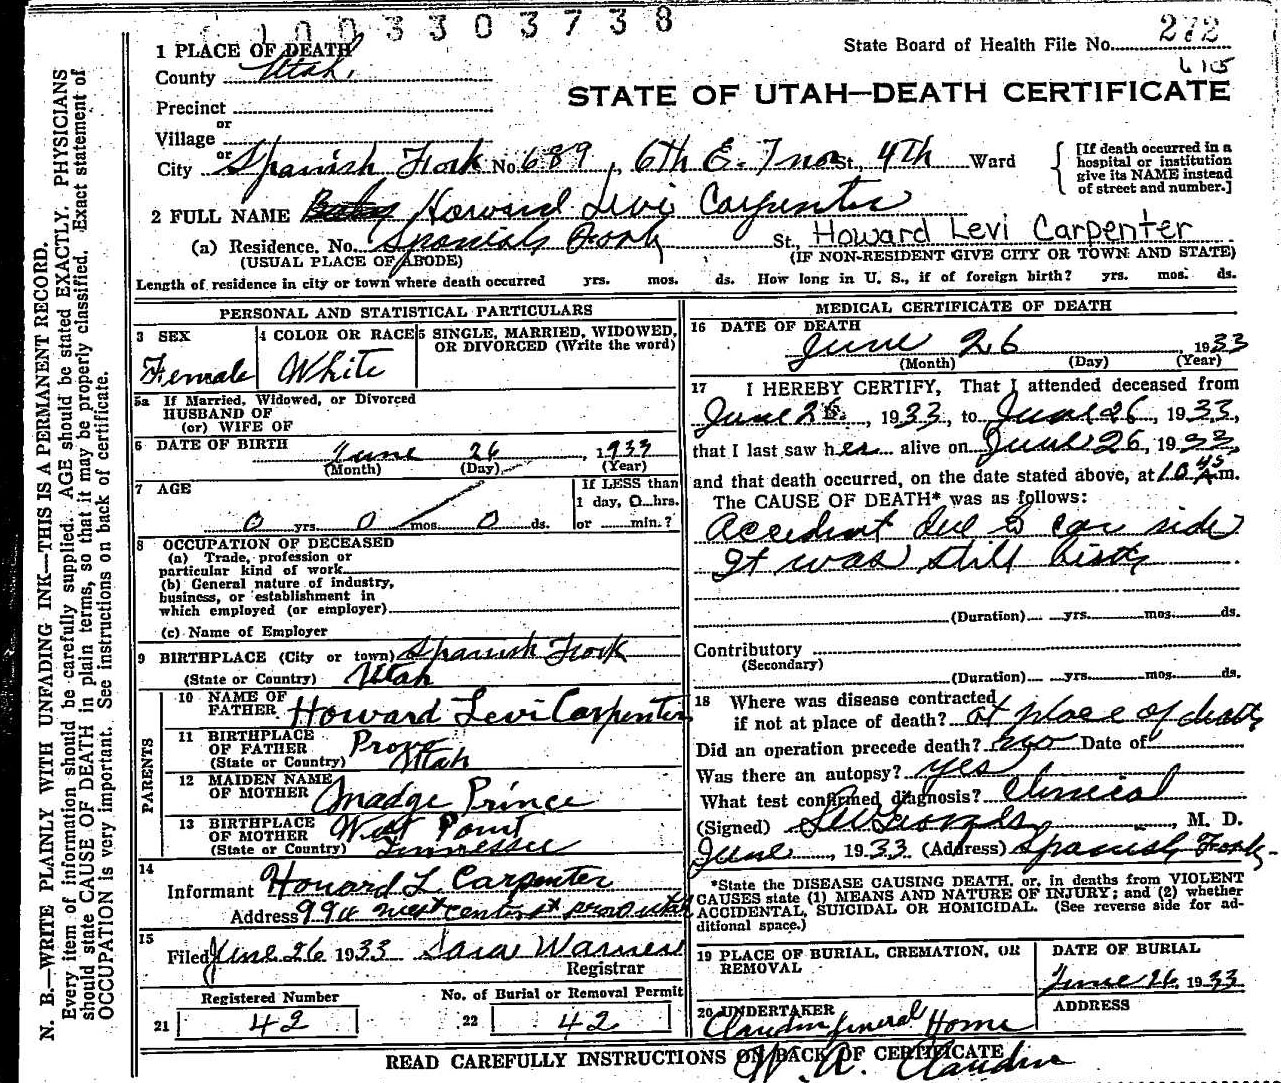 1003303738
1 PLACE OF DEATH State Board of Health File No. 272
County Utah, 615
STATE OF UTAH—DEATH CERTIFICATE
Precinct
or
Village
or
City Spanish Fork No. 689, 6th E. 7 no St, 4th Ward
[If death occurred in a hospital or institution give its NAME instead of street and number.]
2 FULL NAME Baby Howard Levi Carpenter
(a) Residence. No. Spanish Fork St, Howard Levi Carpenter
(USUAL PLACE OF ABODE) (IF NON-RESIDENT GIVE CITY OR TOWN AND STATE)
Length of residence in city or town where death occurred yrs. mos. ds. How long in U. S., if of foreign birth? yrs. mos. ds.
PERSONAL AND STATISTICAL PARTICULARS
3 SEX 4 COLOR OR RACE 5 SINGLE, MARRIED, WIDOWED,
OR DIVORCED (Write the word)
Female White
5a If Married, Widowed, or Divorced
HUSBAND OF
(or) WIFE OF
6 DATE OF BIRTH June 26, 1933
(Month) (Day) (Year)
7 AGE If LESS than
1 day, 0 hrs.
0 yrs. 0 mos. 0 ds. or min.?
8 OCCUPATION OF DECEASED
(a) Trade, profession or
particular kind of work
(b) General nature of industry,
business, or establishment in
which employed (or employer)
(c) Name of Employer
9 BIRTHPLACE (City or town) Spanish Fork
(State or Country) Utah
PARENTS
10 NAME OF
FATHER Howard Levi Carpenter
11 BIRTHPLACE
OF FATHER Provo
(State or Country) Utah
12 MAIDEN NAME
OF MOTHER Madge Prince
13 BIRTHPLACE
OF MOTHER West Point
(State or Country) Tennessee
14
Informant Howard L Carpenter
Address west center st provo utah
15
Filed June 26 1933 Sara Warner
Registrar
Registered Number No. of Burial or Removal Permit
21 42 22 42
MEDICAL CERTIFICATE OF DEATH
16 DATE OF DEATH
June 26 1933
(Month) (Day) (Year)
17 I HEREBY CERTIFY, That I attended deceased from
June 26, 1933, to June 26, 1933,
that I last saw her alive on June 26, 1933,
and that death occurred, on the date stated above, at 10 45 A.m.
The CAUSE OF DEATH* was as follows:
Accident due to car side
It was still birth
(Duration) yrs. mos. ds.
Contributory
(Secondary)
(Duration) yrs. mos. ds.
18 Where was disease contracted
if not at place of death? at place of death
Did an operation precede death? no Date of
Was there an autopsy? yes
What test confirmed diagnosis? Clinical
(Signed) , M. D.
June , 1933 (Address) Spanish Fork
*State the DISEASE CAUSING DEATH, or, in deaths from VIOLENT
CAUSES state (1) MEANS AND NATURE OF INJURY; and (2) whether
ACCIDENTAL, SUICIDAL OR HOMICIDAL. (See reverse side for ad-
ditional space.)
19 PLACE OF BURIAL, CREMATION, OR
REMOVAL
DATE OF BURIAL
June 26, 1933
20 UNDERTAKER ADDRESS
Claudin Funeral Home
W. A. Claudin
READ CAREFULLY INSTRUCTIONS ON BACK OF CERTIFICATE
N. B.—WRITE PLAINLY WITH UNFADING INK—THIS IS A PERMANENT RECORD.
Every item of information should be carefully supplied. AGE should be stated EXACTLY. PHYSICIANS
should state CAUSE OF DEATH in plain terms, so that it may be properly classified. Exact statement of
OCCUPATION is very important. See instructions on back of certificate.